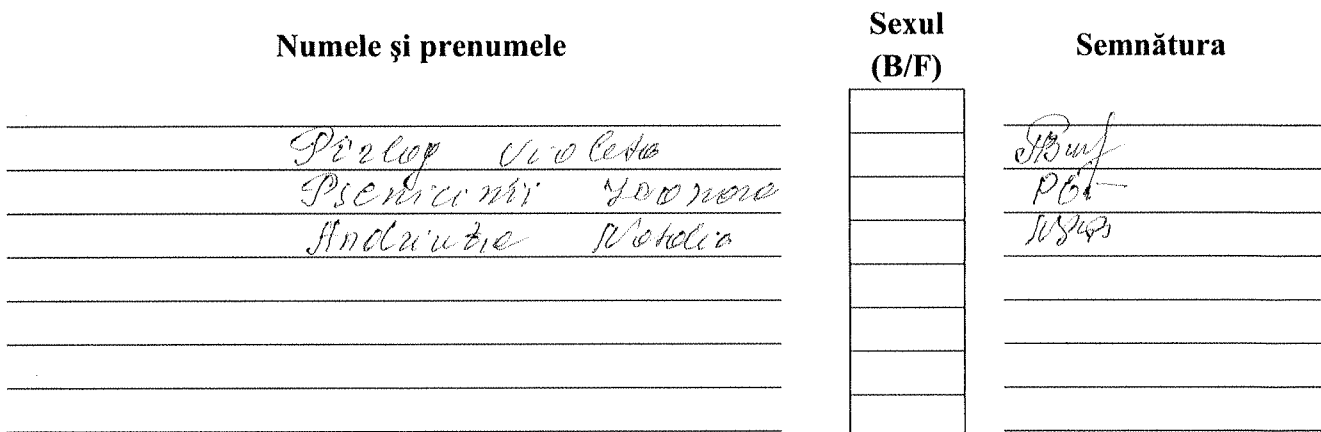 Numele și prenumele Sexul (B/F) Semnătura
Pîrlog Violeta
Psenicinîi
Andriuție Natalia